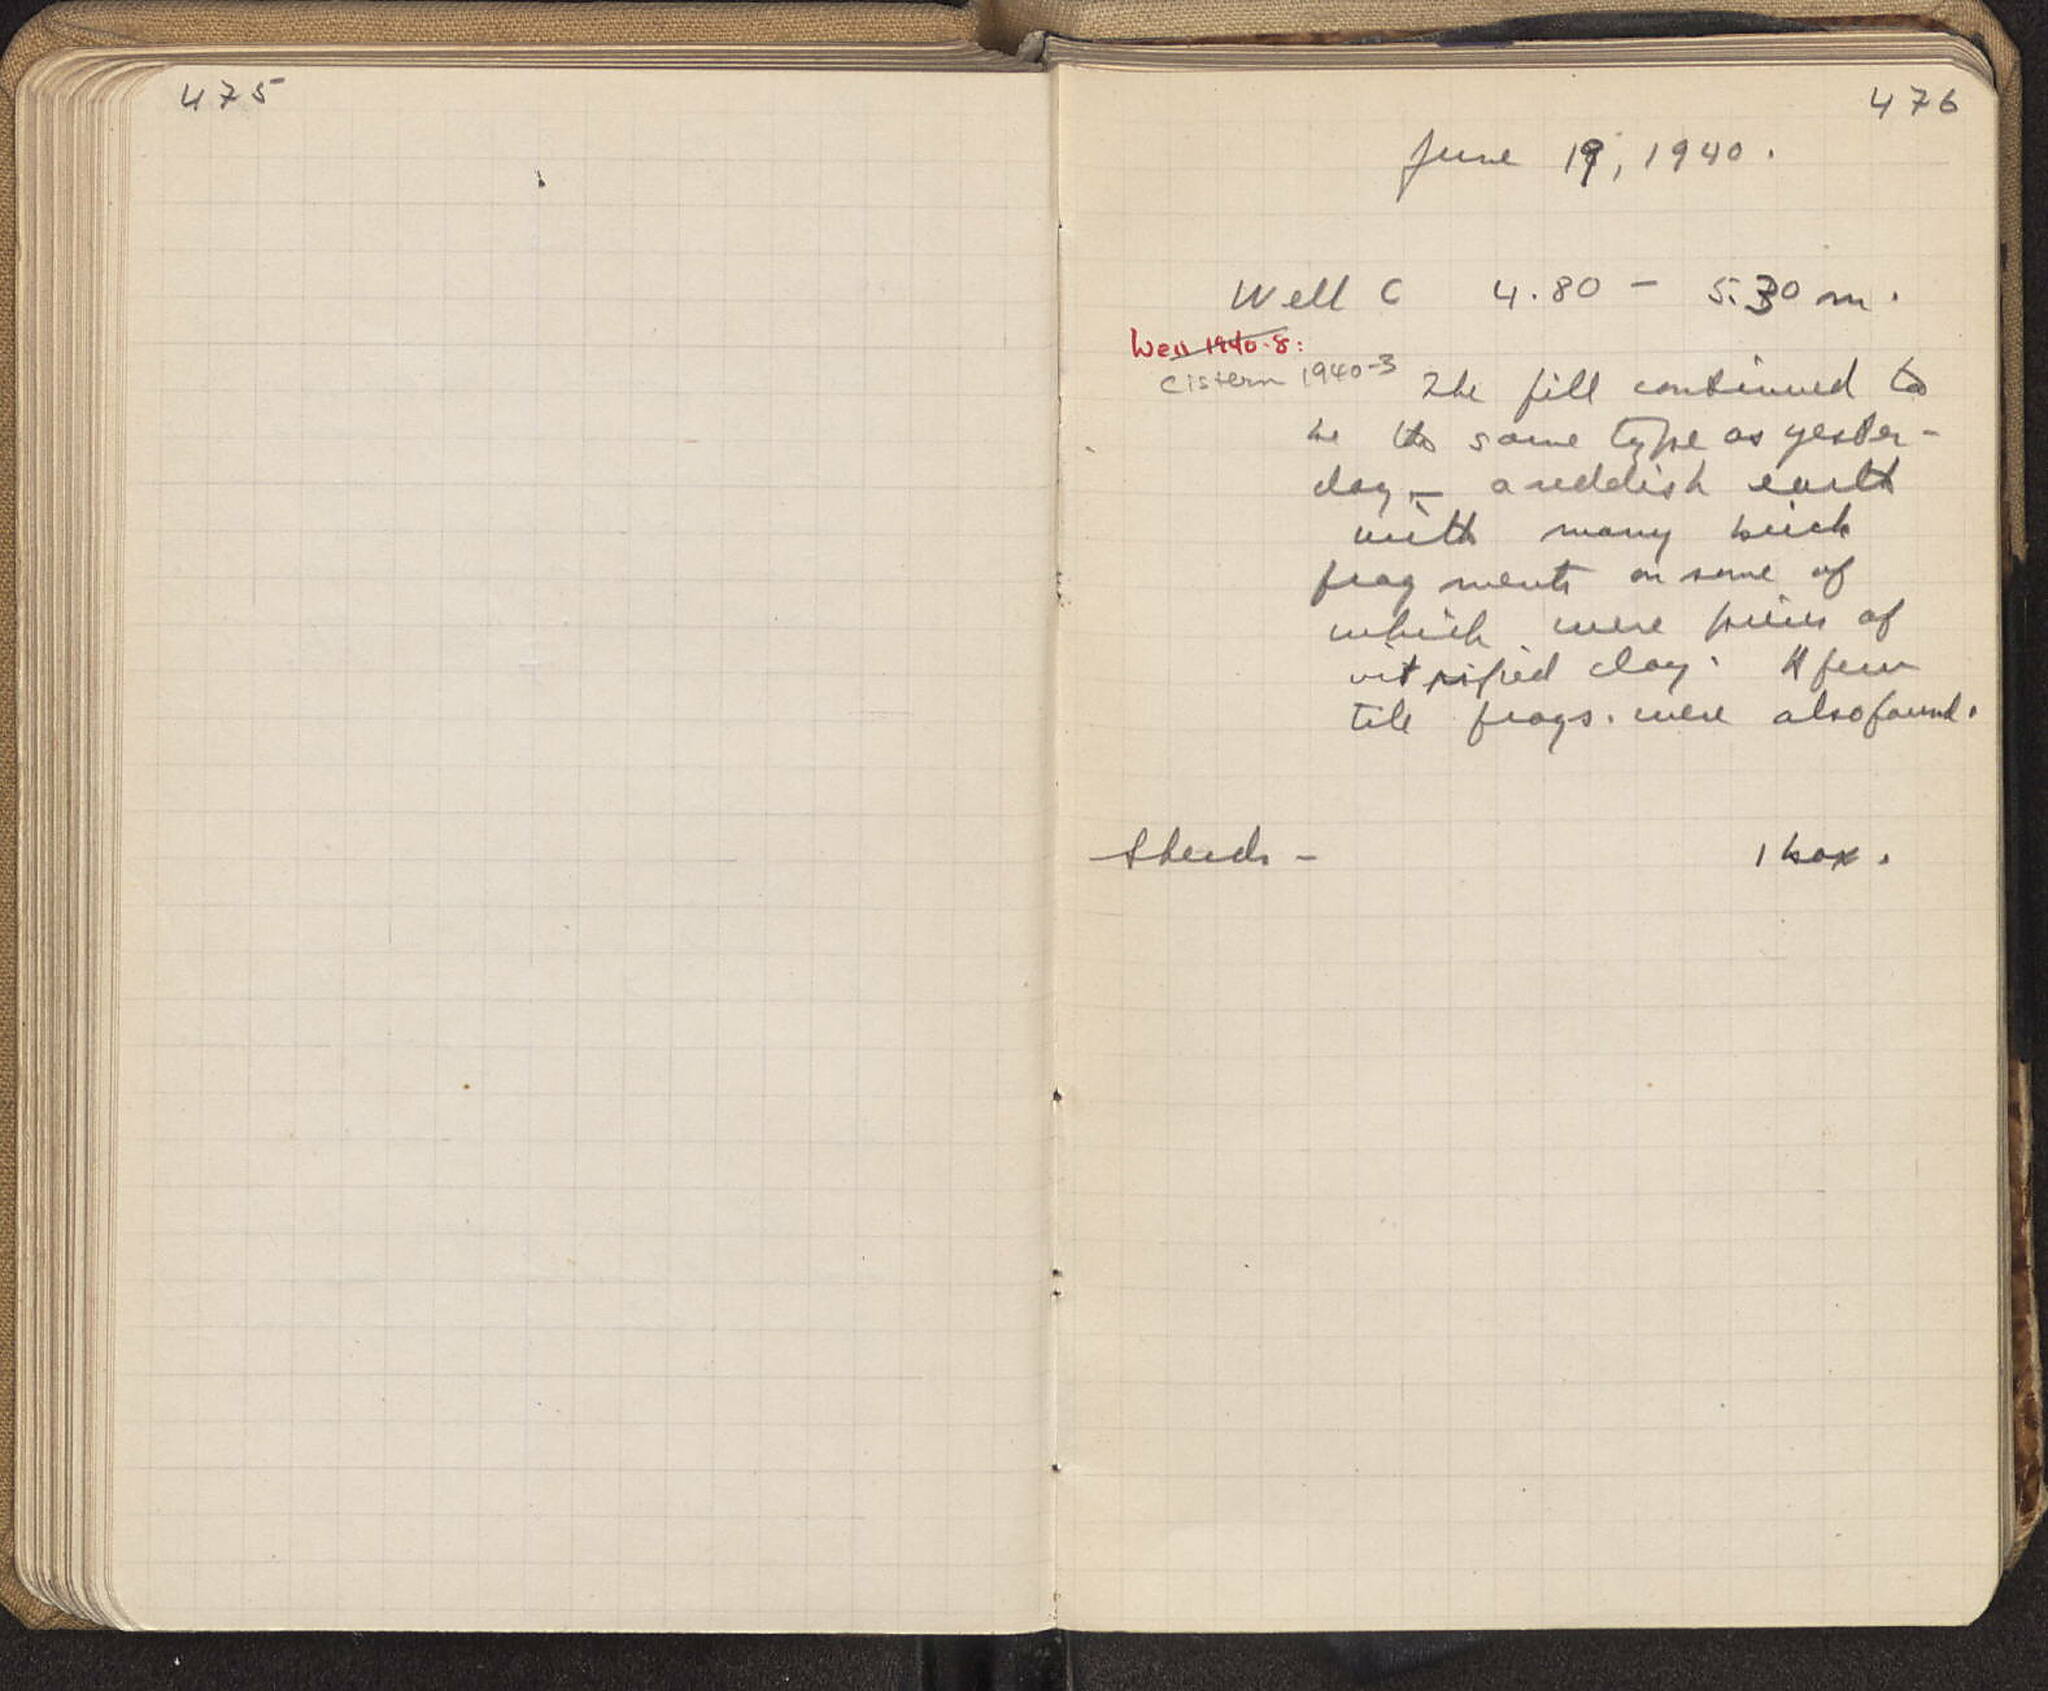 475
476
June 19, 1940.
Well C 4.80 - 5.30 m.
Well 1940-8:
Cistern 1940-3
The fill continued to
be the same type as yester-
day, - a reddish earth
with many brick
fragments on some of
which were pieces of
vitrified clay. A few
tile frags. were also found.
Sherds - 1 box.